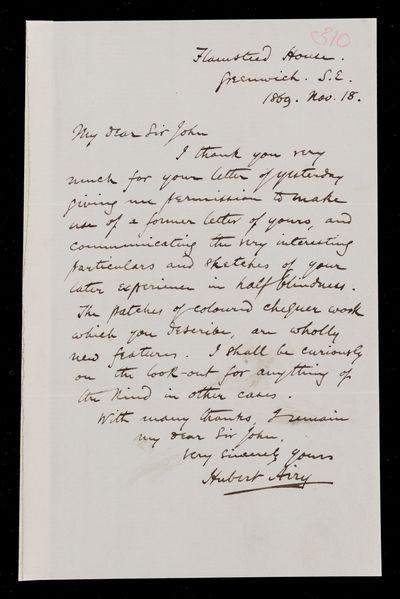 310
Flamsteed House.
Greenwich. S.E.
1869. Nov. 18.
My dear Sir John
I thank you very
much for your letter of yesterday
giving me permission to make
use of a former letter of yours, and
communicating the very interesting
particulars and sketches of your
later experience in half blindness.
The patches of coloured chequer work
which you describe, are wholly
new features. I shall be curiously
on the look-out for anything of
the kind in other cases.
With many thanks, I remain
my dear Sir John,
very sincerely yours
Hubert Airy